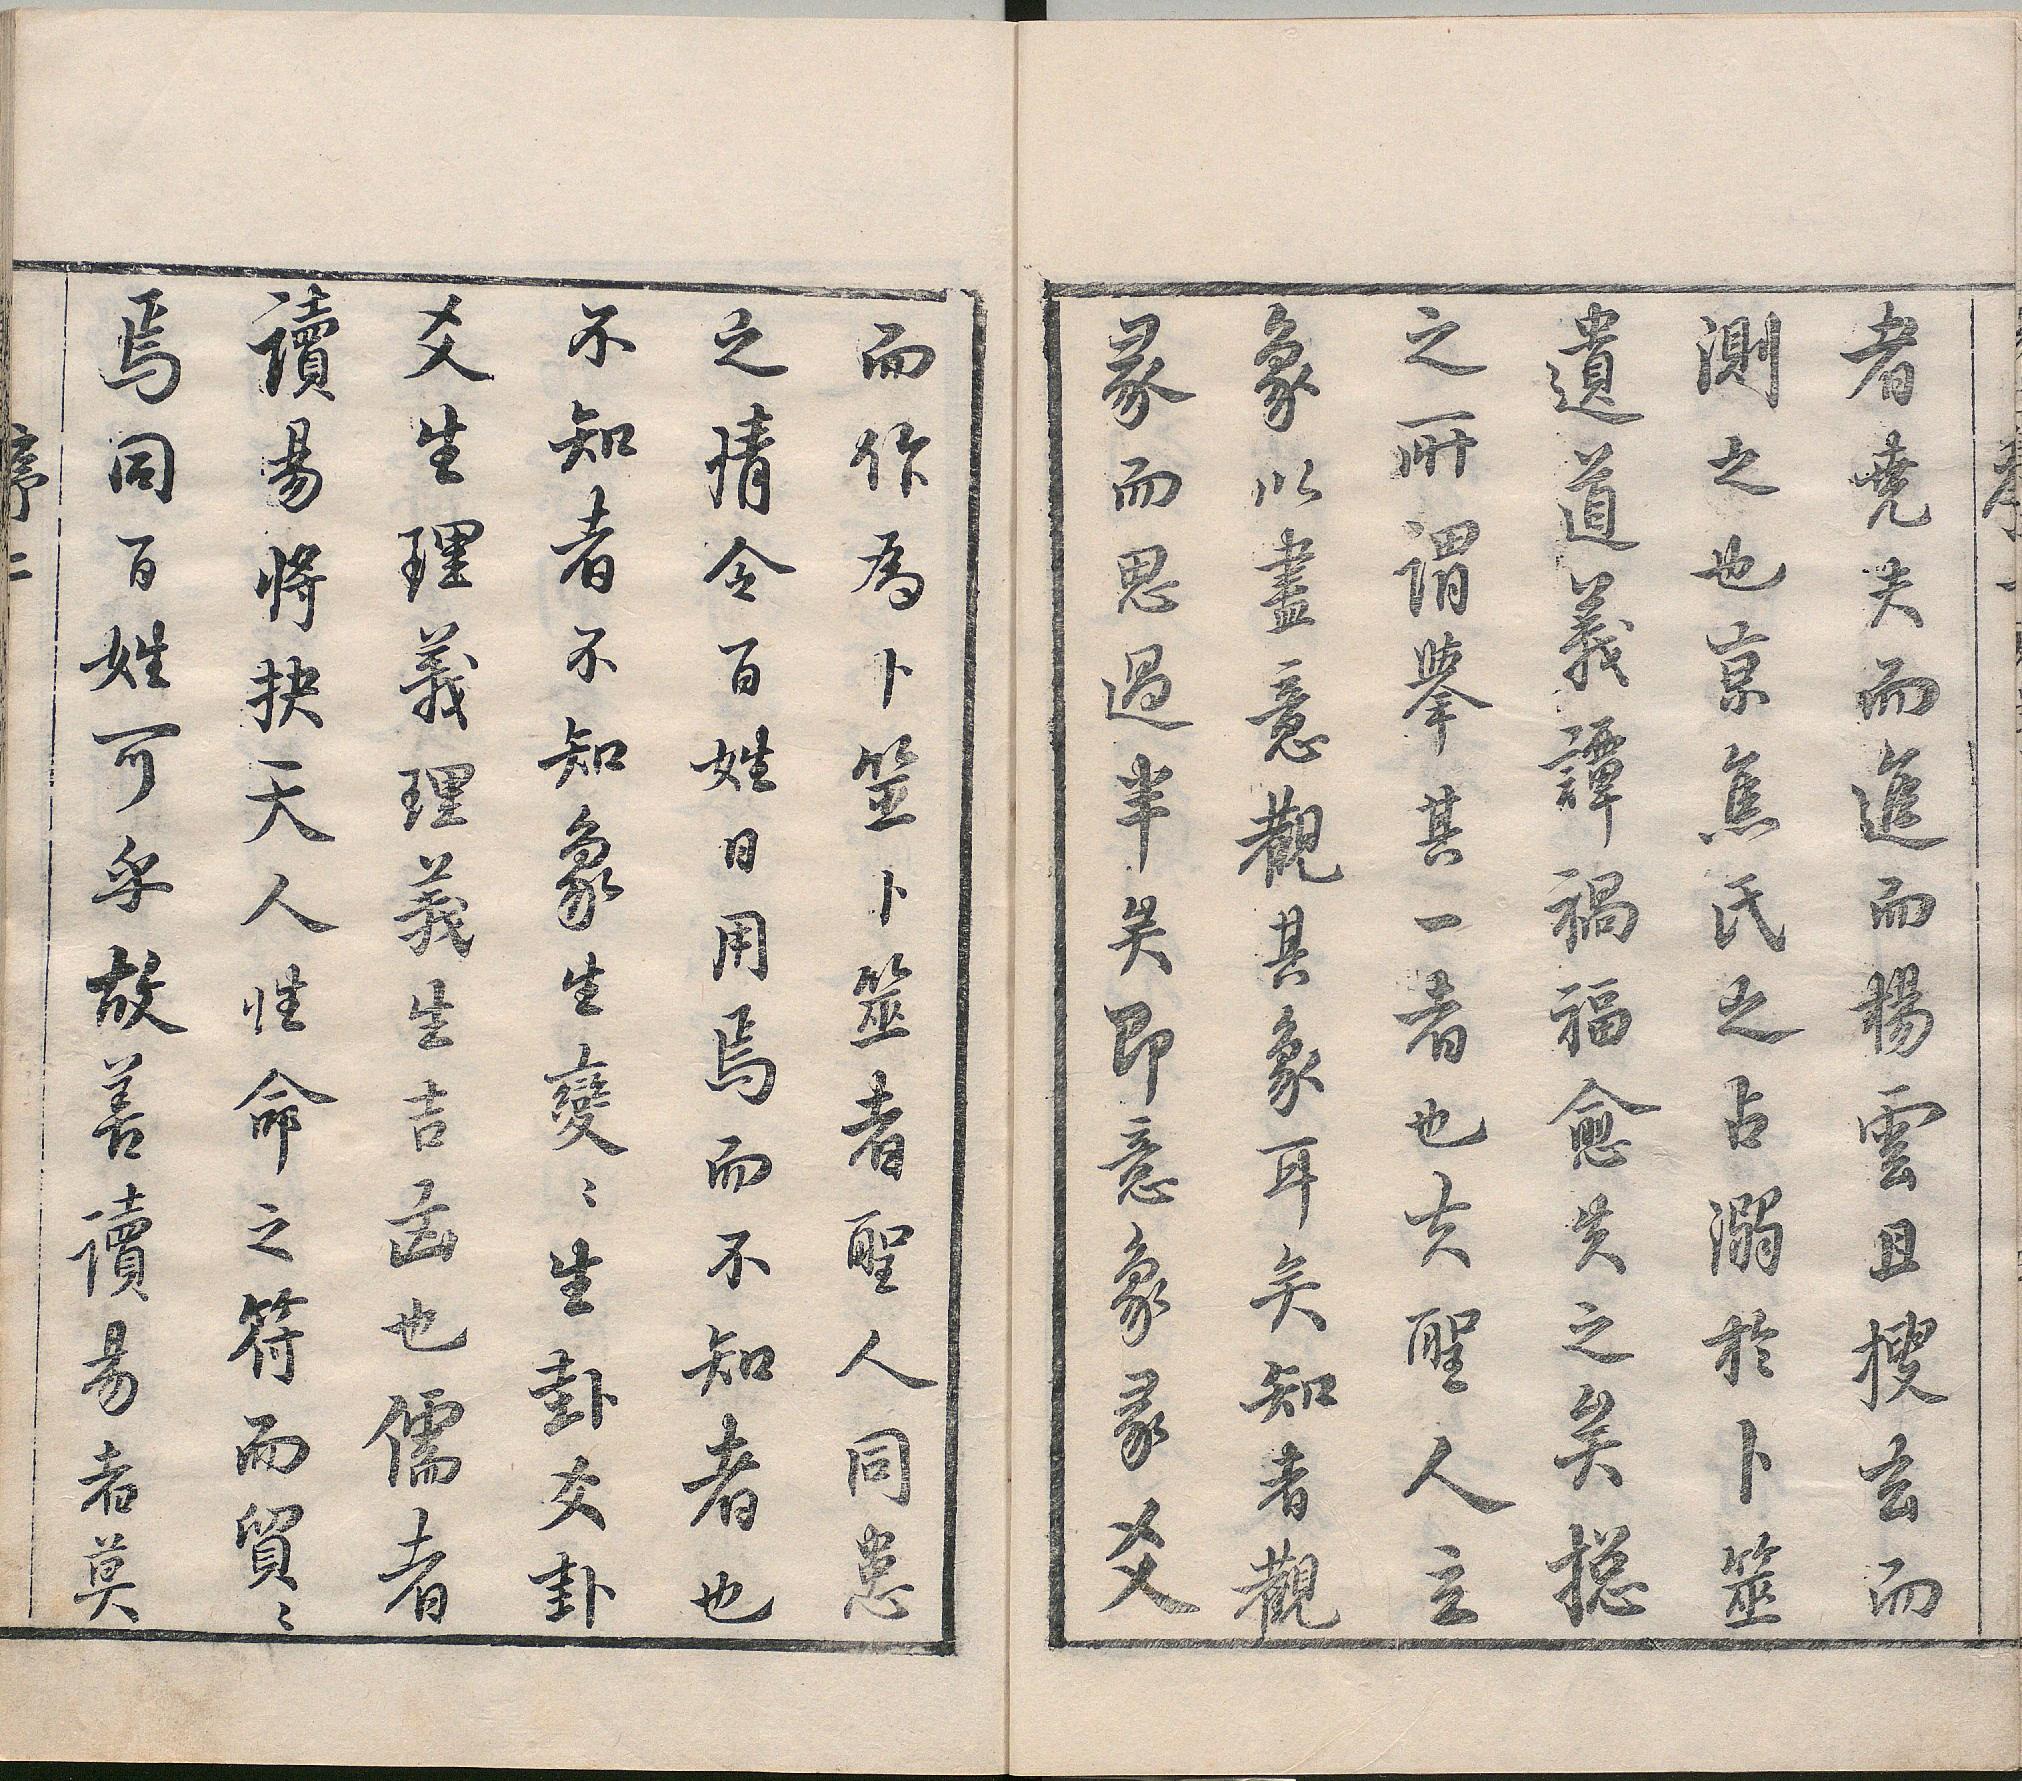 者堯夫而進而楊雲且搜玄而
測之也京焦氏之占溺於卜筮
遺道義譚禍福愈失之矣揔
之所謂舉其一者也夫聖人立
象以盡意觀其象耳矣知者觀
彖而思過半矣即意象彖爻
而作為卜筮卜筮者聖人同患
之情令百姓日用焉而不知者也
不知者不知象生變〻生卦爻卦
爻生理義理義生吉凶也儒者
讀易將抉天人性命之符而貿〻
焉同百姓可乎故善讀易者莫
序 二